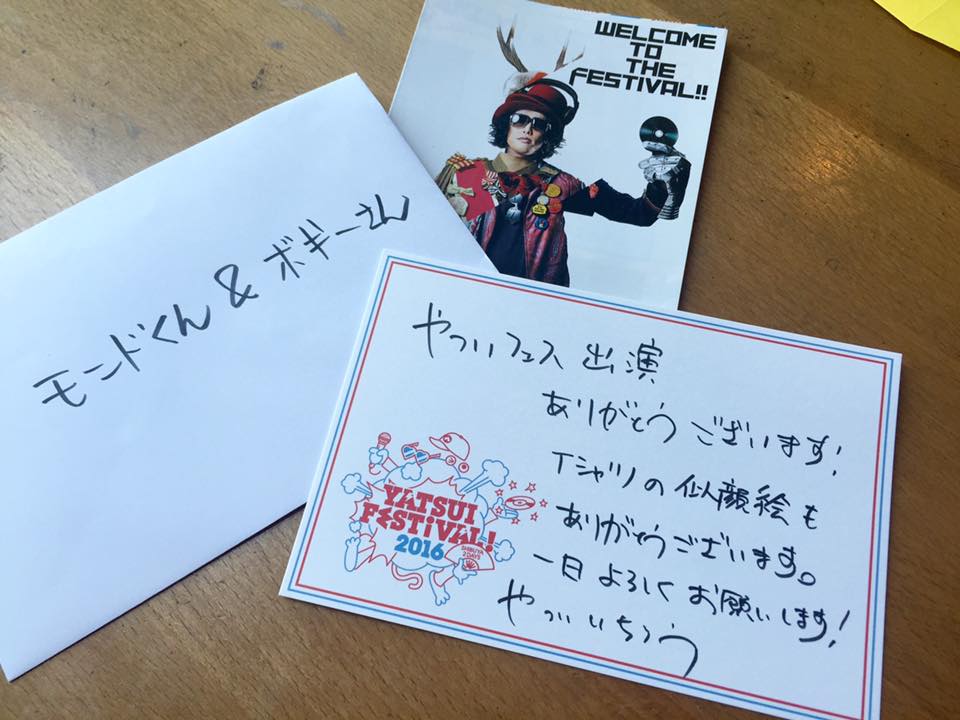 WELCOME
TO
THE
FESTIVAL!!
モンドくん & ボギーさん
やついフェス 出演
ありがとうございます!
Tシャツの似顔絵も
ありがとうございます。
一日よろしくお願いします!
やついいちろう
YATSUI
FESTiVAL!
2016
SHIBUYA
2DAYS